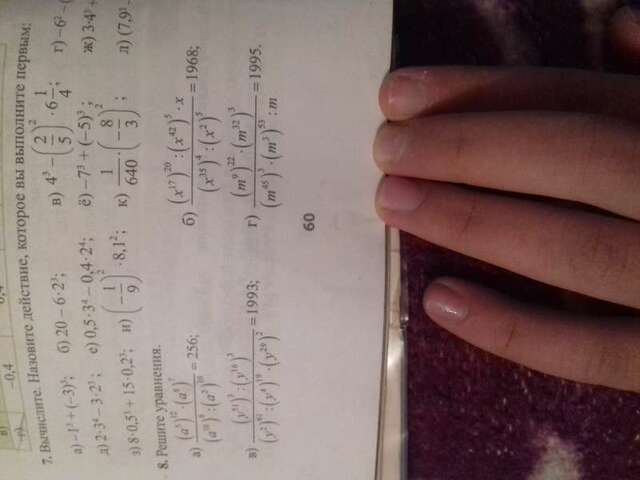 в)
г) -0,4 0,4
7. Вычислите. Назовите действие, которое вы выполните первым:
а) –1³ + (–3)³; б) 20 – 6·2³; в) 4³ – (2/5)² · 6 1/4; г) –6² –
д) 2·3⁴ – 3·2³; е) 0,5·3⁴ – 0,4·2⁴; ё) –7³ + (–5)³; ж) 3·4³
з) 8·0,5³ + 15·0,2³; и) (–1/9)² · 8,1²; к) 1/640 · (–8/3)²; л) (7,9³
8. Решите уравнения.
а) (a⁵)¹² · (a⁸)⁷ / (a¹⁶)⁶ : (a²)¹⁰ = 256; б) (x¹⁷)²⁰ : (x⁴²)⁵ · x / (x³⁵)⁴ : (x²)⁵ = 1968;
в) (y⁵¹)⁵ : (y¹⁶)³ / (y²)⁶¹ : (y⁴)¹⁹ · (y²⁰)² = 1993; г) (m⁹)²² · (m³²)³ / (m⁴⁵)³ · (m³)⁵³ : m = 1995.
60